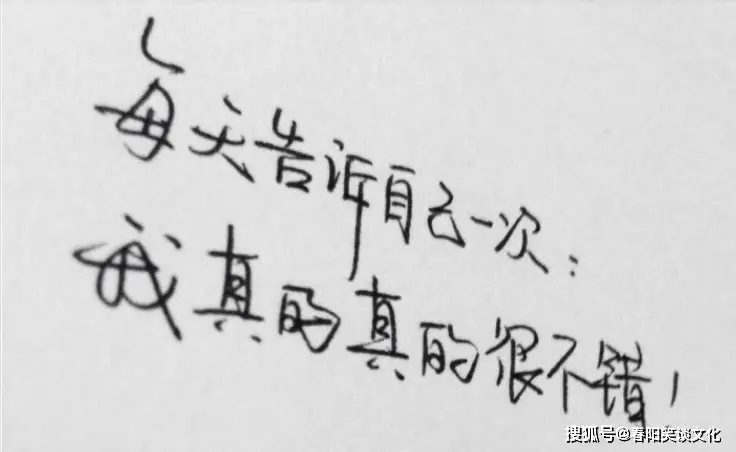 每天告诉自己一次:
我真的真的很不错!
搜狐号@春阳笑谈文化